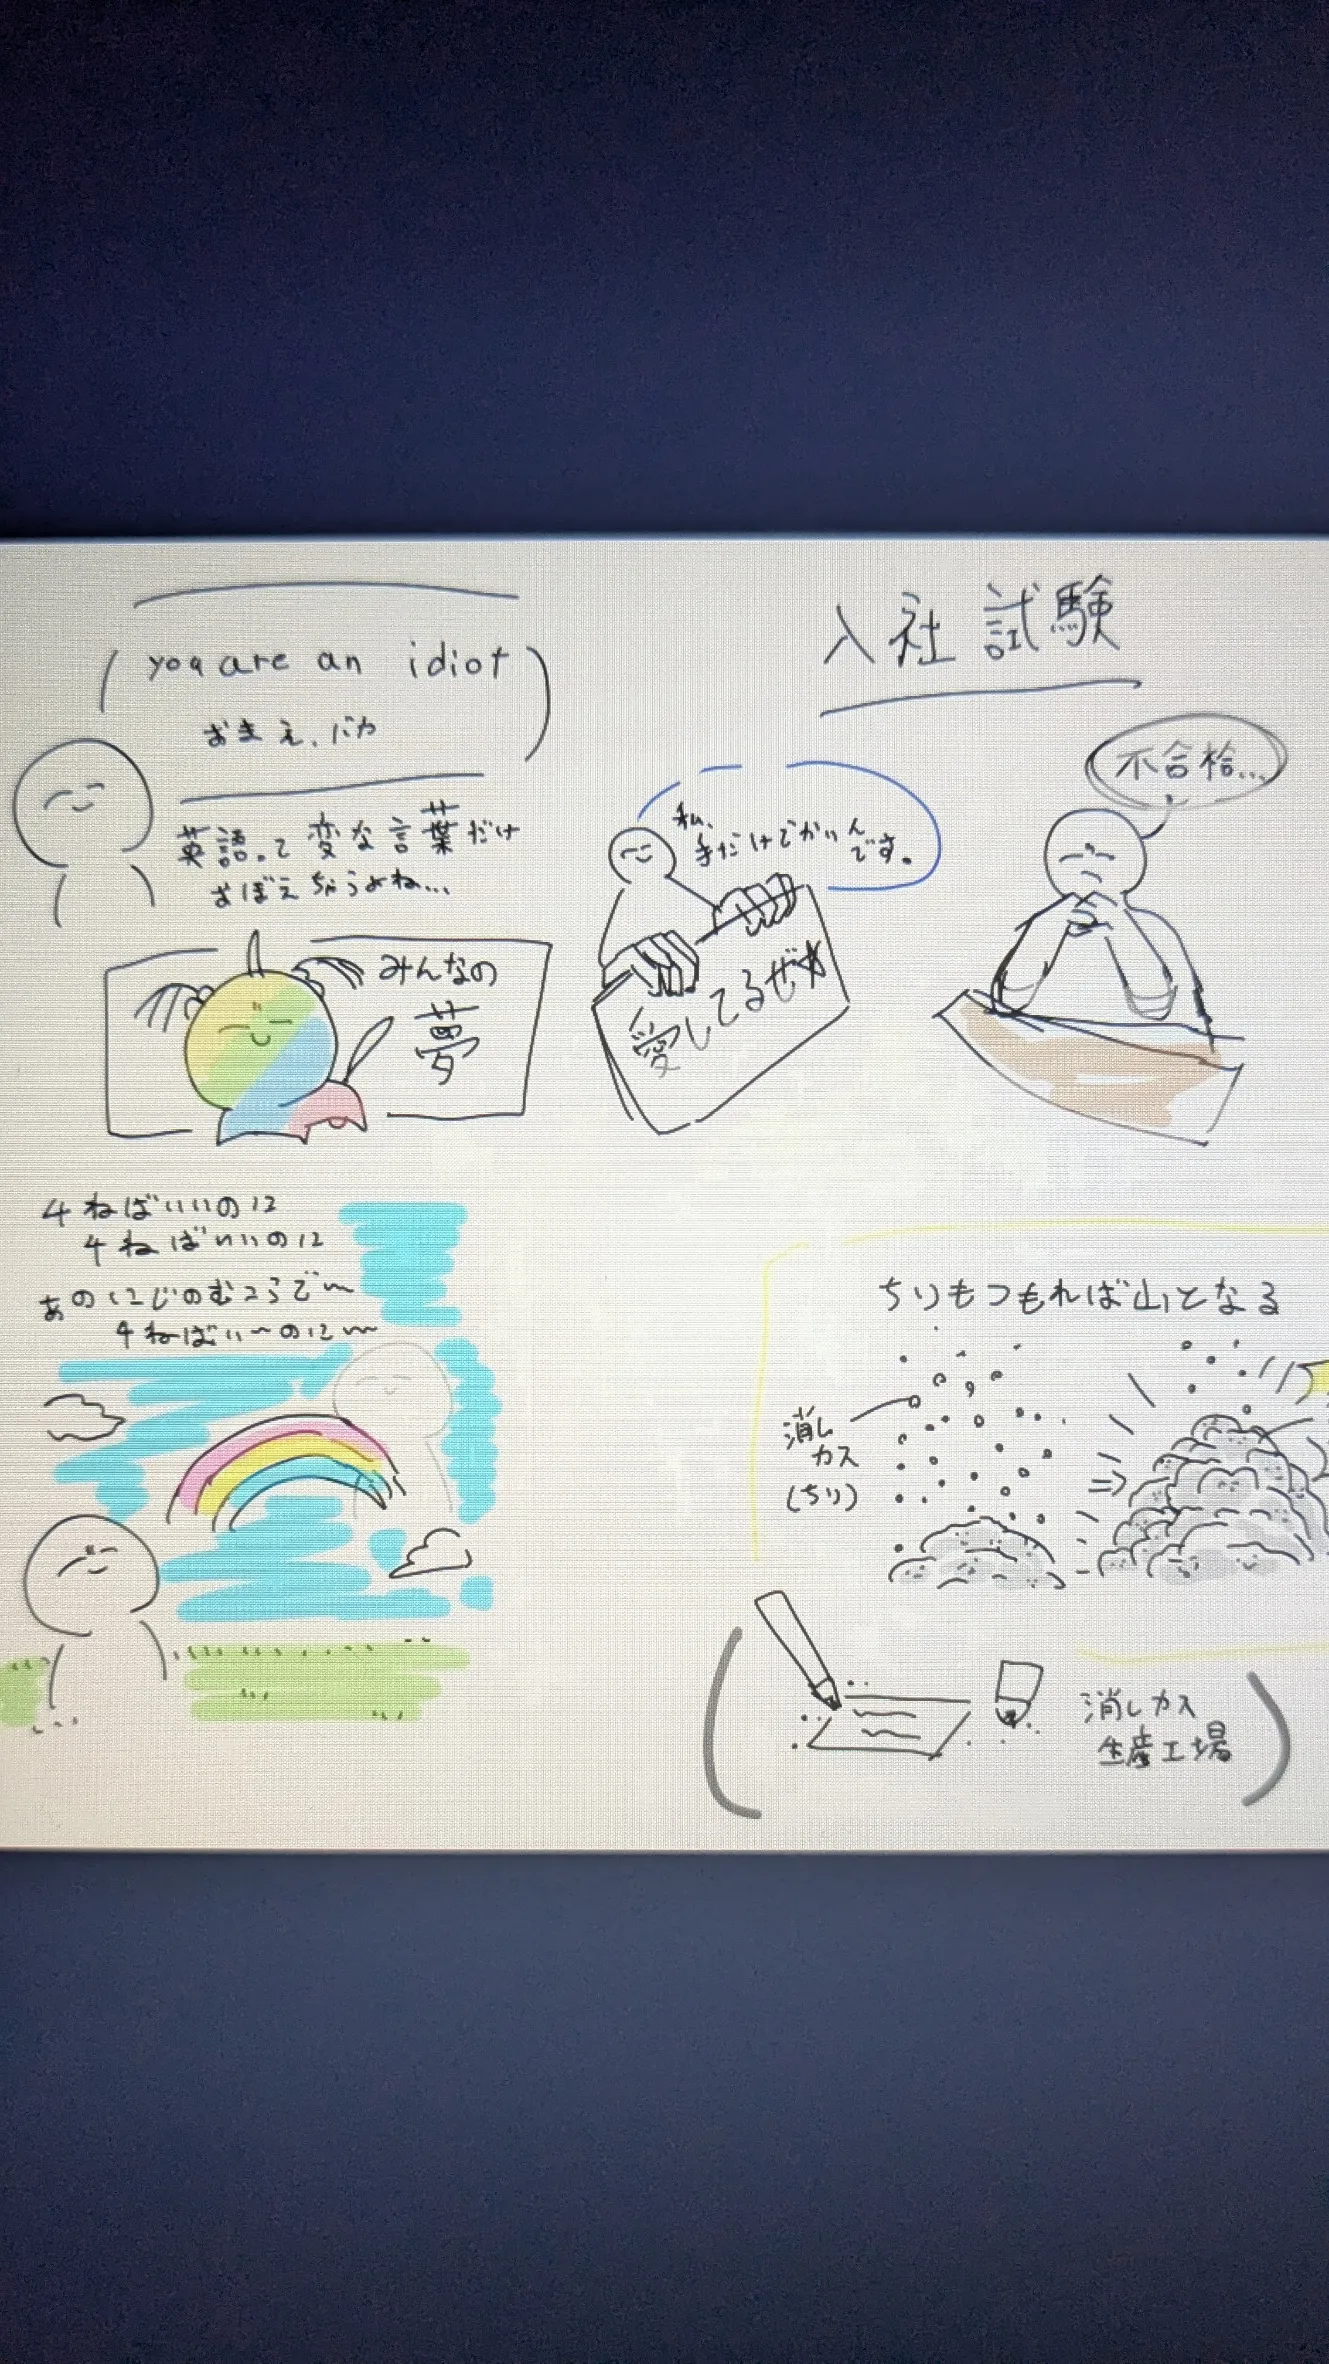 you are an idiot
おまえ、バカ
英語って変な言葉だけ
おぼえちゃうよね…
みんなの
夢
入社試験
私、
手だけでかいん
です。
愛してるぜ☆
不合格…
4ねばいいの12
4ねばいいの12
あの12じのむコうで〜
4ねばい〜の12〜
ちりもつもれば山となる
消し
カス
(ちり)
消しカス
生産工場